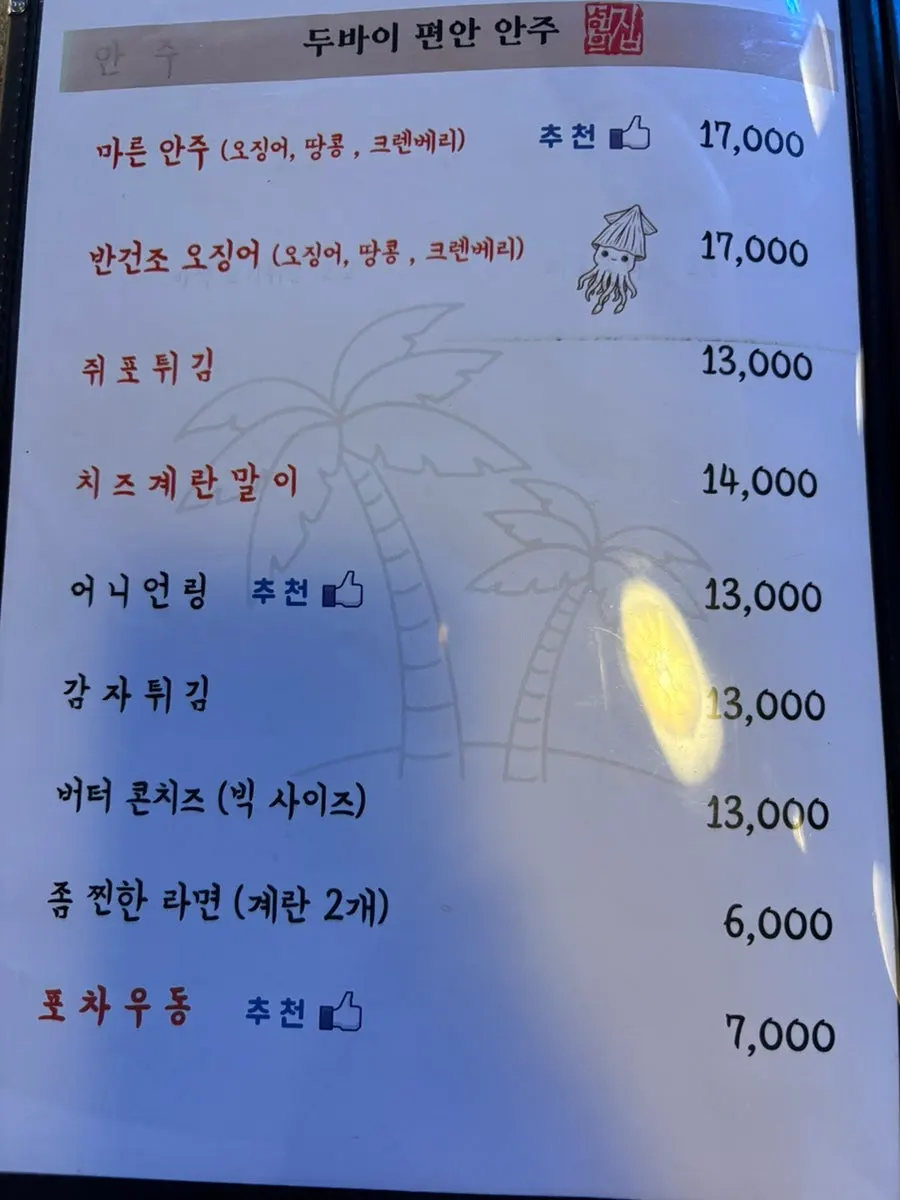 안 주
두바이 편안 안주
마른 안주 (오징어, 땅콩 , 크렌베리) 추천 17,000
반건조 오징어 (오징어, 땅콩 , 크렌베리) 17,000
쥐포튀김 13,000
치즈계란말이 14,000
어니언링 추천 13,000
감자튀김 13,000
버터 콘치즈 (빅 사이즈) 13,000
좀 찐한 라면 (계란 2개) 6,000
포차우동 추천 7,000